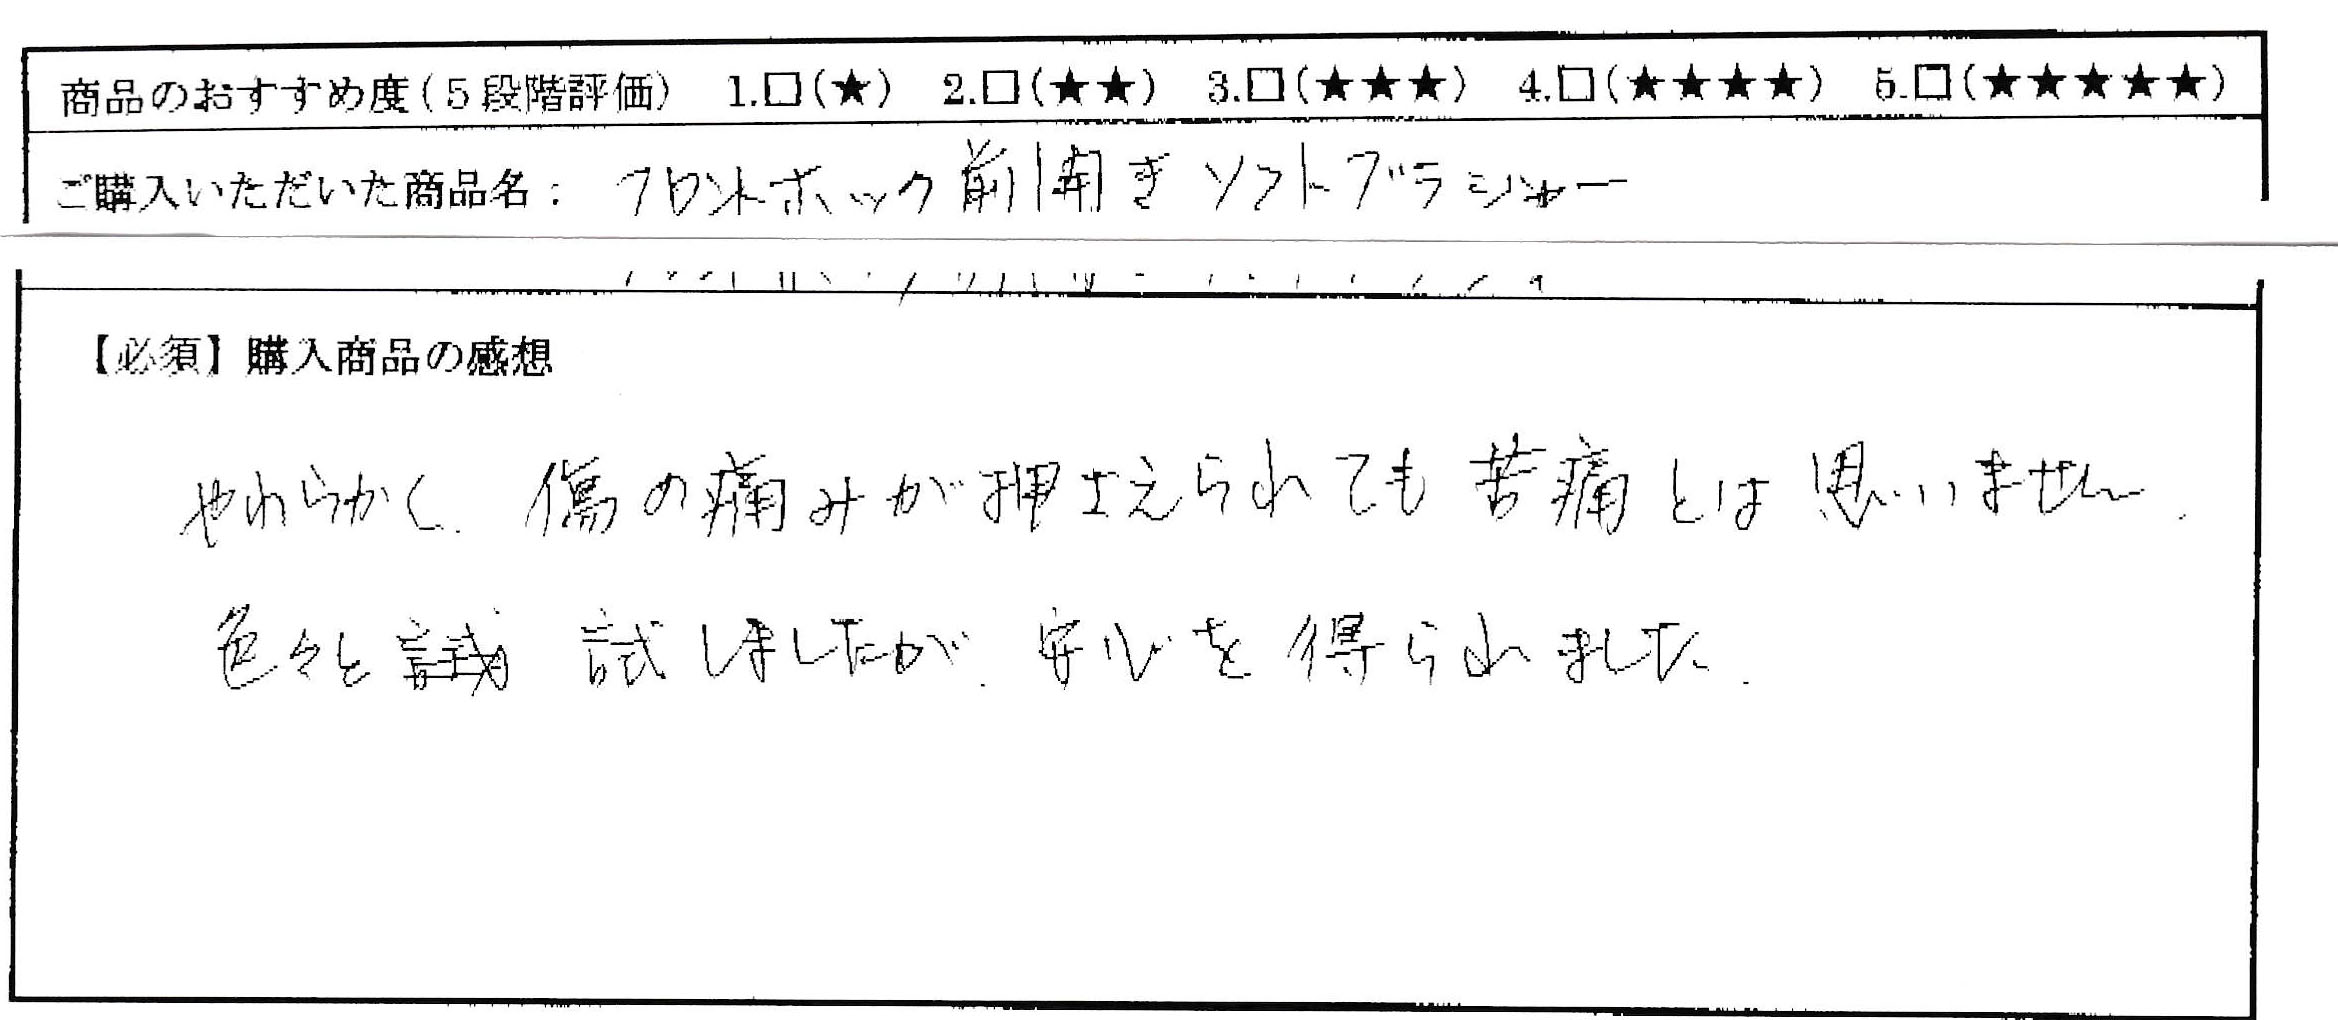 商品のおすすめ度(5段階評価) 1.□(★) 2.□(★★) 3.□(★★★) 4.□(★★★★) 5.□(★★★★★)
ご購入いただいた商品名: フロントホック前開きソフトブラジャー
【必須】購入商品の感想
やわらかく、傷の痛みが押士えられても苦痛とは思いません。
色々と 試しましたが、安心を得られました。